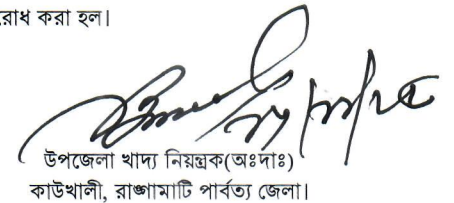 রোধ করা হল।
উপজেলা খাদ্য নিয়ন্ত্রক(অঃদাঃ)
কাউখালী, রাঙ্গামাটি পার্বত্য জেলা।